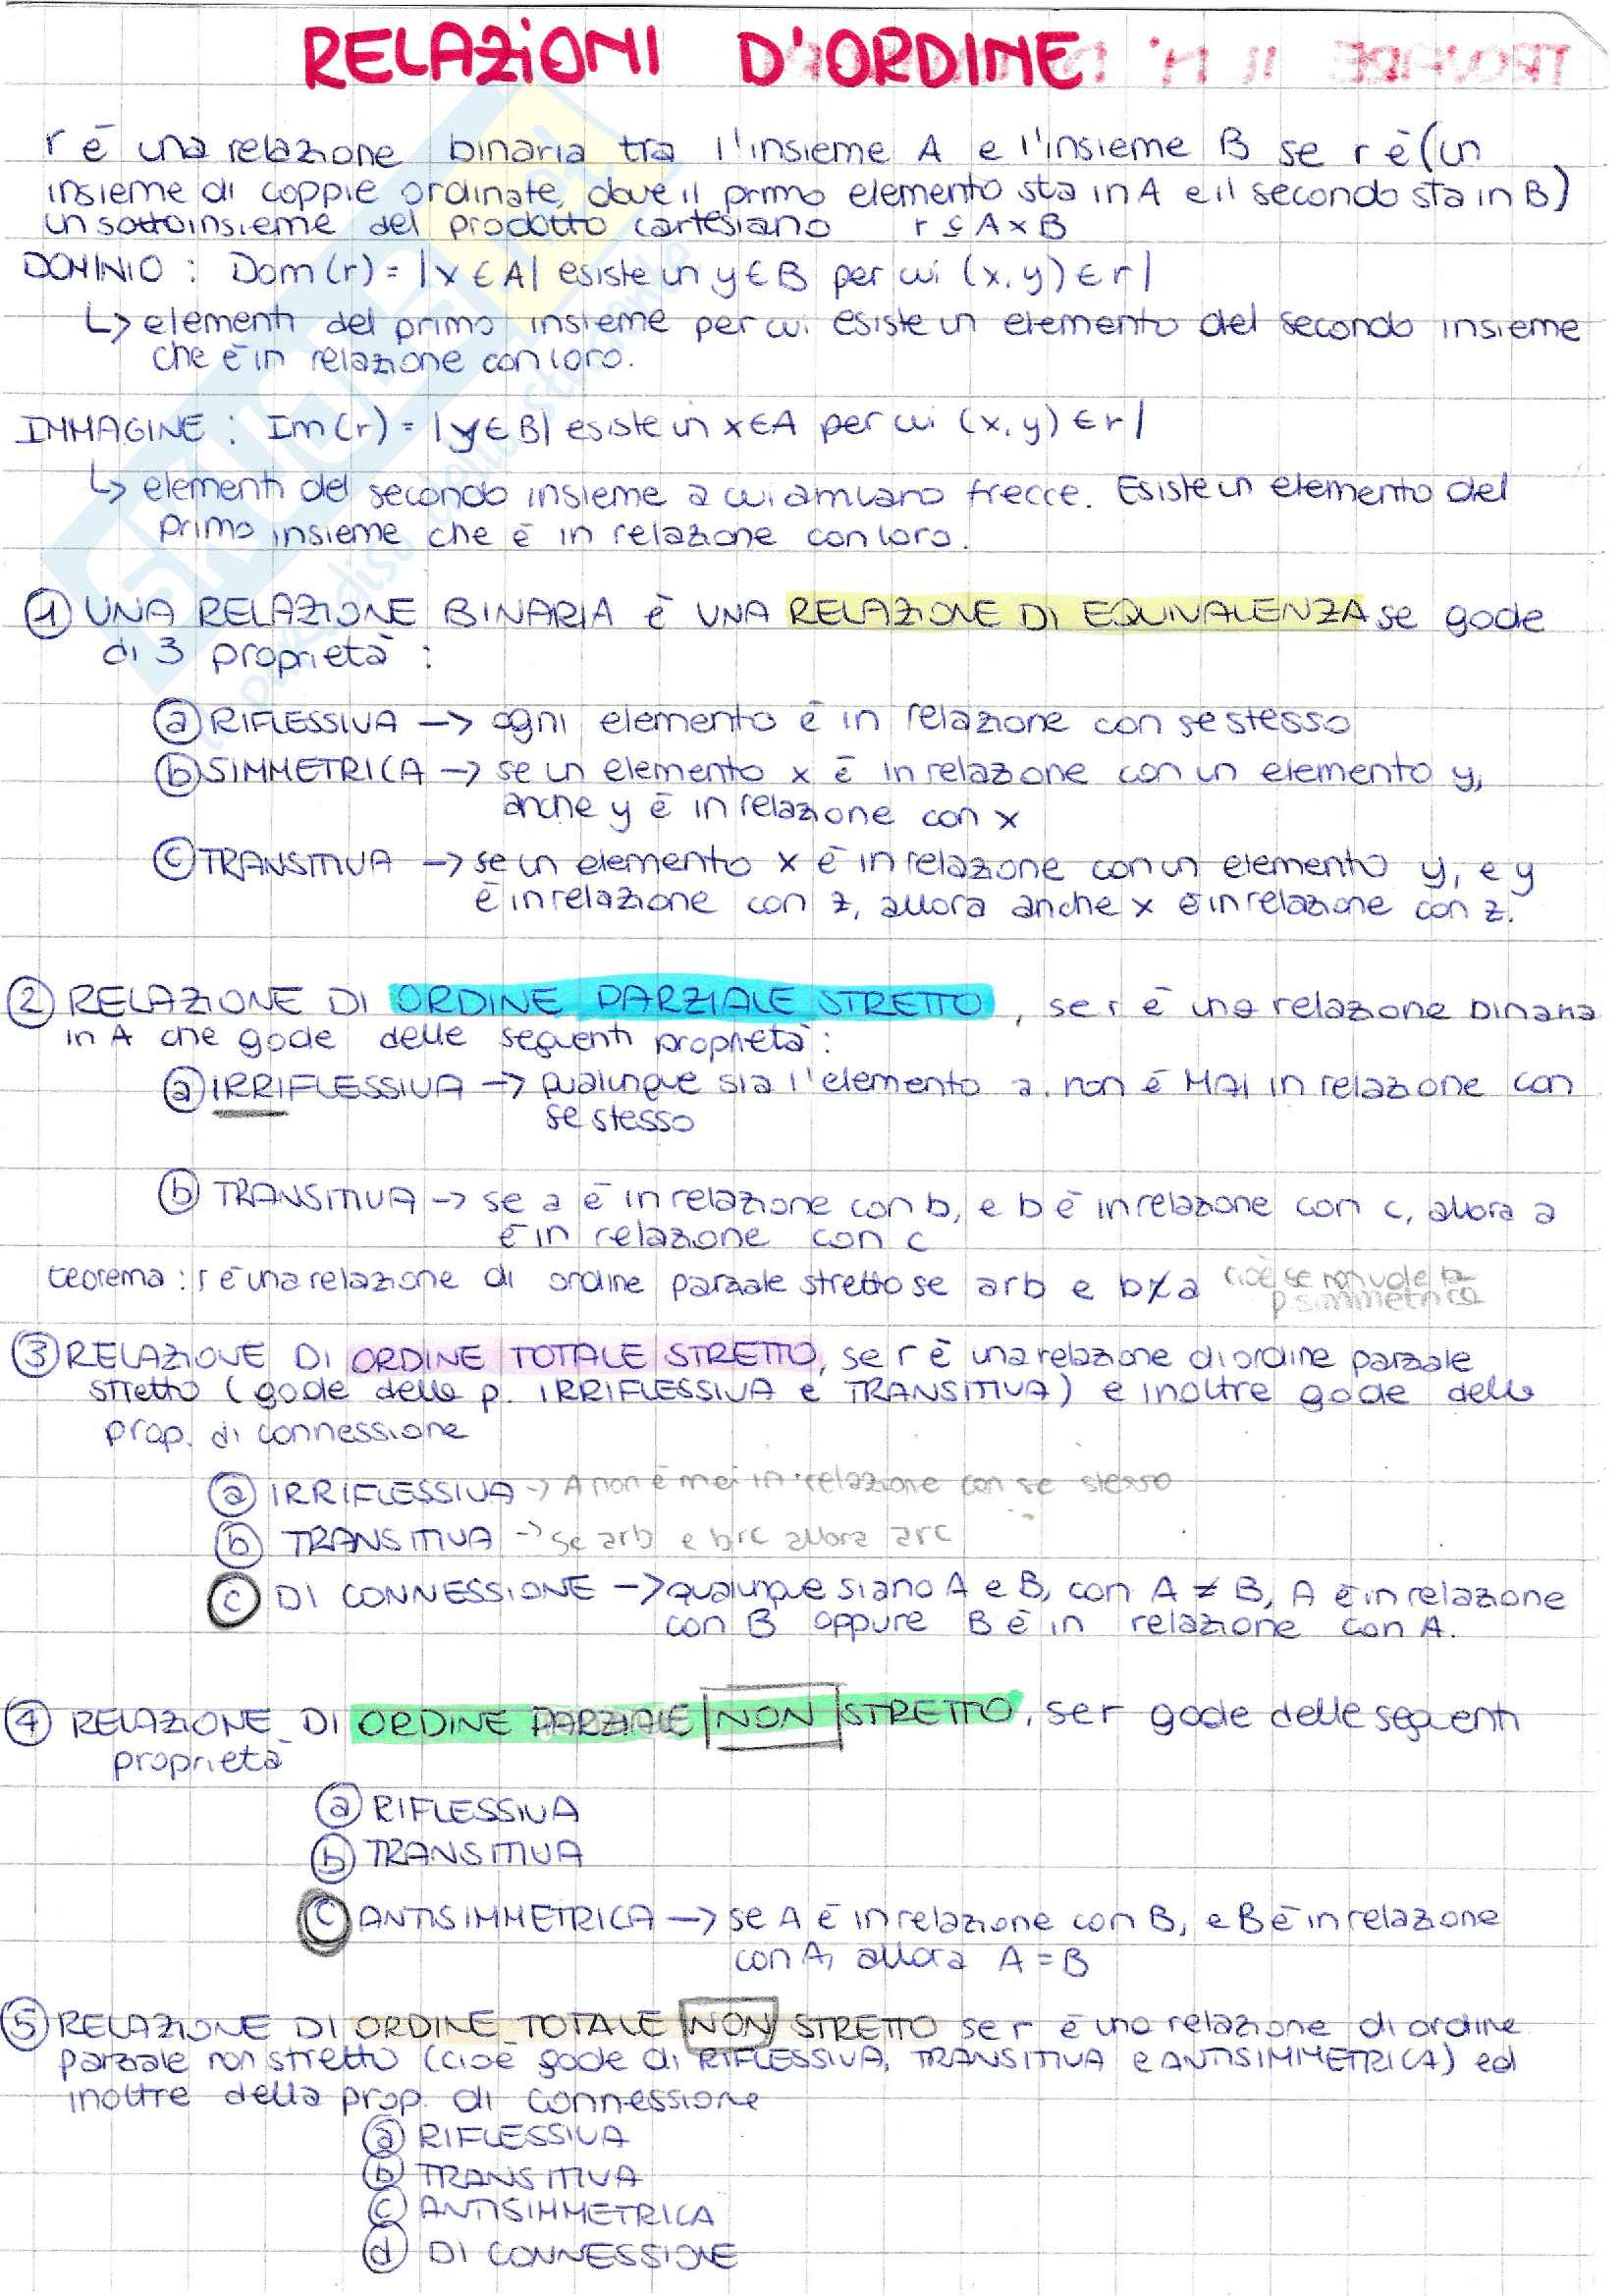 RELAZIONI D'ORDINE
r è una relazione binaria tra l'insieme A e l'insieme B se r è (un
insieme di coppie ordinate, dove il primo elemento sta in A e il secondo sta in B)
un sottoinsieme del prodotto cartesiano r ⊆ A × B
DOMINIO : Dom (r) = |x ∈ A| esiste un y ∈ B per cui (x, y) ∈ r|
↳ elementi del primo insieme per cui esiste un elemento del secondo insieme
che è in relazione con loro.
IMMAGINE : Im (r) = |y ∈ B| esiste un x ∈ A per cui (x, y) ∈ r|
↳ elementi del secondo insieme a cui arrivano frecce. Esiste un elemento del
primo insieme che è in relazione con loro.
① UNA RELAZIONE BINARIA È UNA RELAZIONE DI EQUIVALENZA se gode
di 3 proprietà :
ⓐ RIFLESSIVA → ogni elemento è in relazione con se stesso
ⓑ SIMMETRICA → se un elemento x è in relazione con un elemento y,
anche y è in relazione con x
ⓒ TRANSITIVA → se un elemento x è in relazione con un elemento y, e y
è in relazione con z, allora anche x è in relazione con z.
② RELAZIONE DI ORDINE PARZIALE STRETTO, se r è una relazione binaria
in A che gode delle seguenti proprietà :
ⓐ IRRIFLESSIVA → qualunque sia l'elemento a, non è MAI in relazione con
se stesso
ⓑ TRANSITIVA → se a è in relazione con b, e b è in relazione con c, allora a
è in relazione con c
teorema : r è una relazione di ordine parziale stretto se arb e b r̸ a cioè se non vale la
p simmetrica
③ RELAZIONE DI ORDINE TOTALE STRETTO, se r è una relazione di ordine parziale
stretto (gode delle p. IRRIFLESSIVA e TRANSITIVA) e inoltre gode della
prop. di connessione
ⓐ IRRIFLESSIVA → A non è mai in relazione con se stesso
ⓑ TRANSITIVA → se arb e brc allora arc
ⓒ DI CONNESSIONE → qualunque siano A e B, con A ≠ B, A è in relazione
con B oppure B è in relazione con A.
④ RELAZIONE DI ORDINE PARZIALE NON STRETTO, se r gode delle seguenti
proprietà
ⓐ RIFLESSIVA
ⓑ TRANSITIVA
ⓒ ANTISIMMETRICA → se A è in relazione con B, e B è in relazione
con A, allora A = B
⑤ RELAZIONE DI ORDINE TOTALE NON STRETTO se r è una relazione di ordine
parziale non stretto (cioè gode di RIFLESSIVA, TRANSITIVA e ANTISIMMETRICA) ed
inoltre della prop. di connessione
ⓐ RIFLESSIVA
ⓑ TRANSITIVA
ⓒ ANTISIMMETRICA
ⓓ DI CONNESSIONE